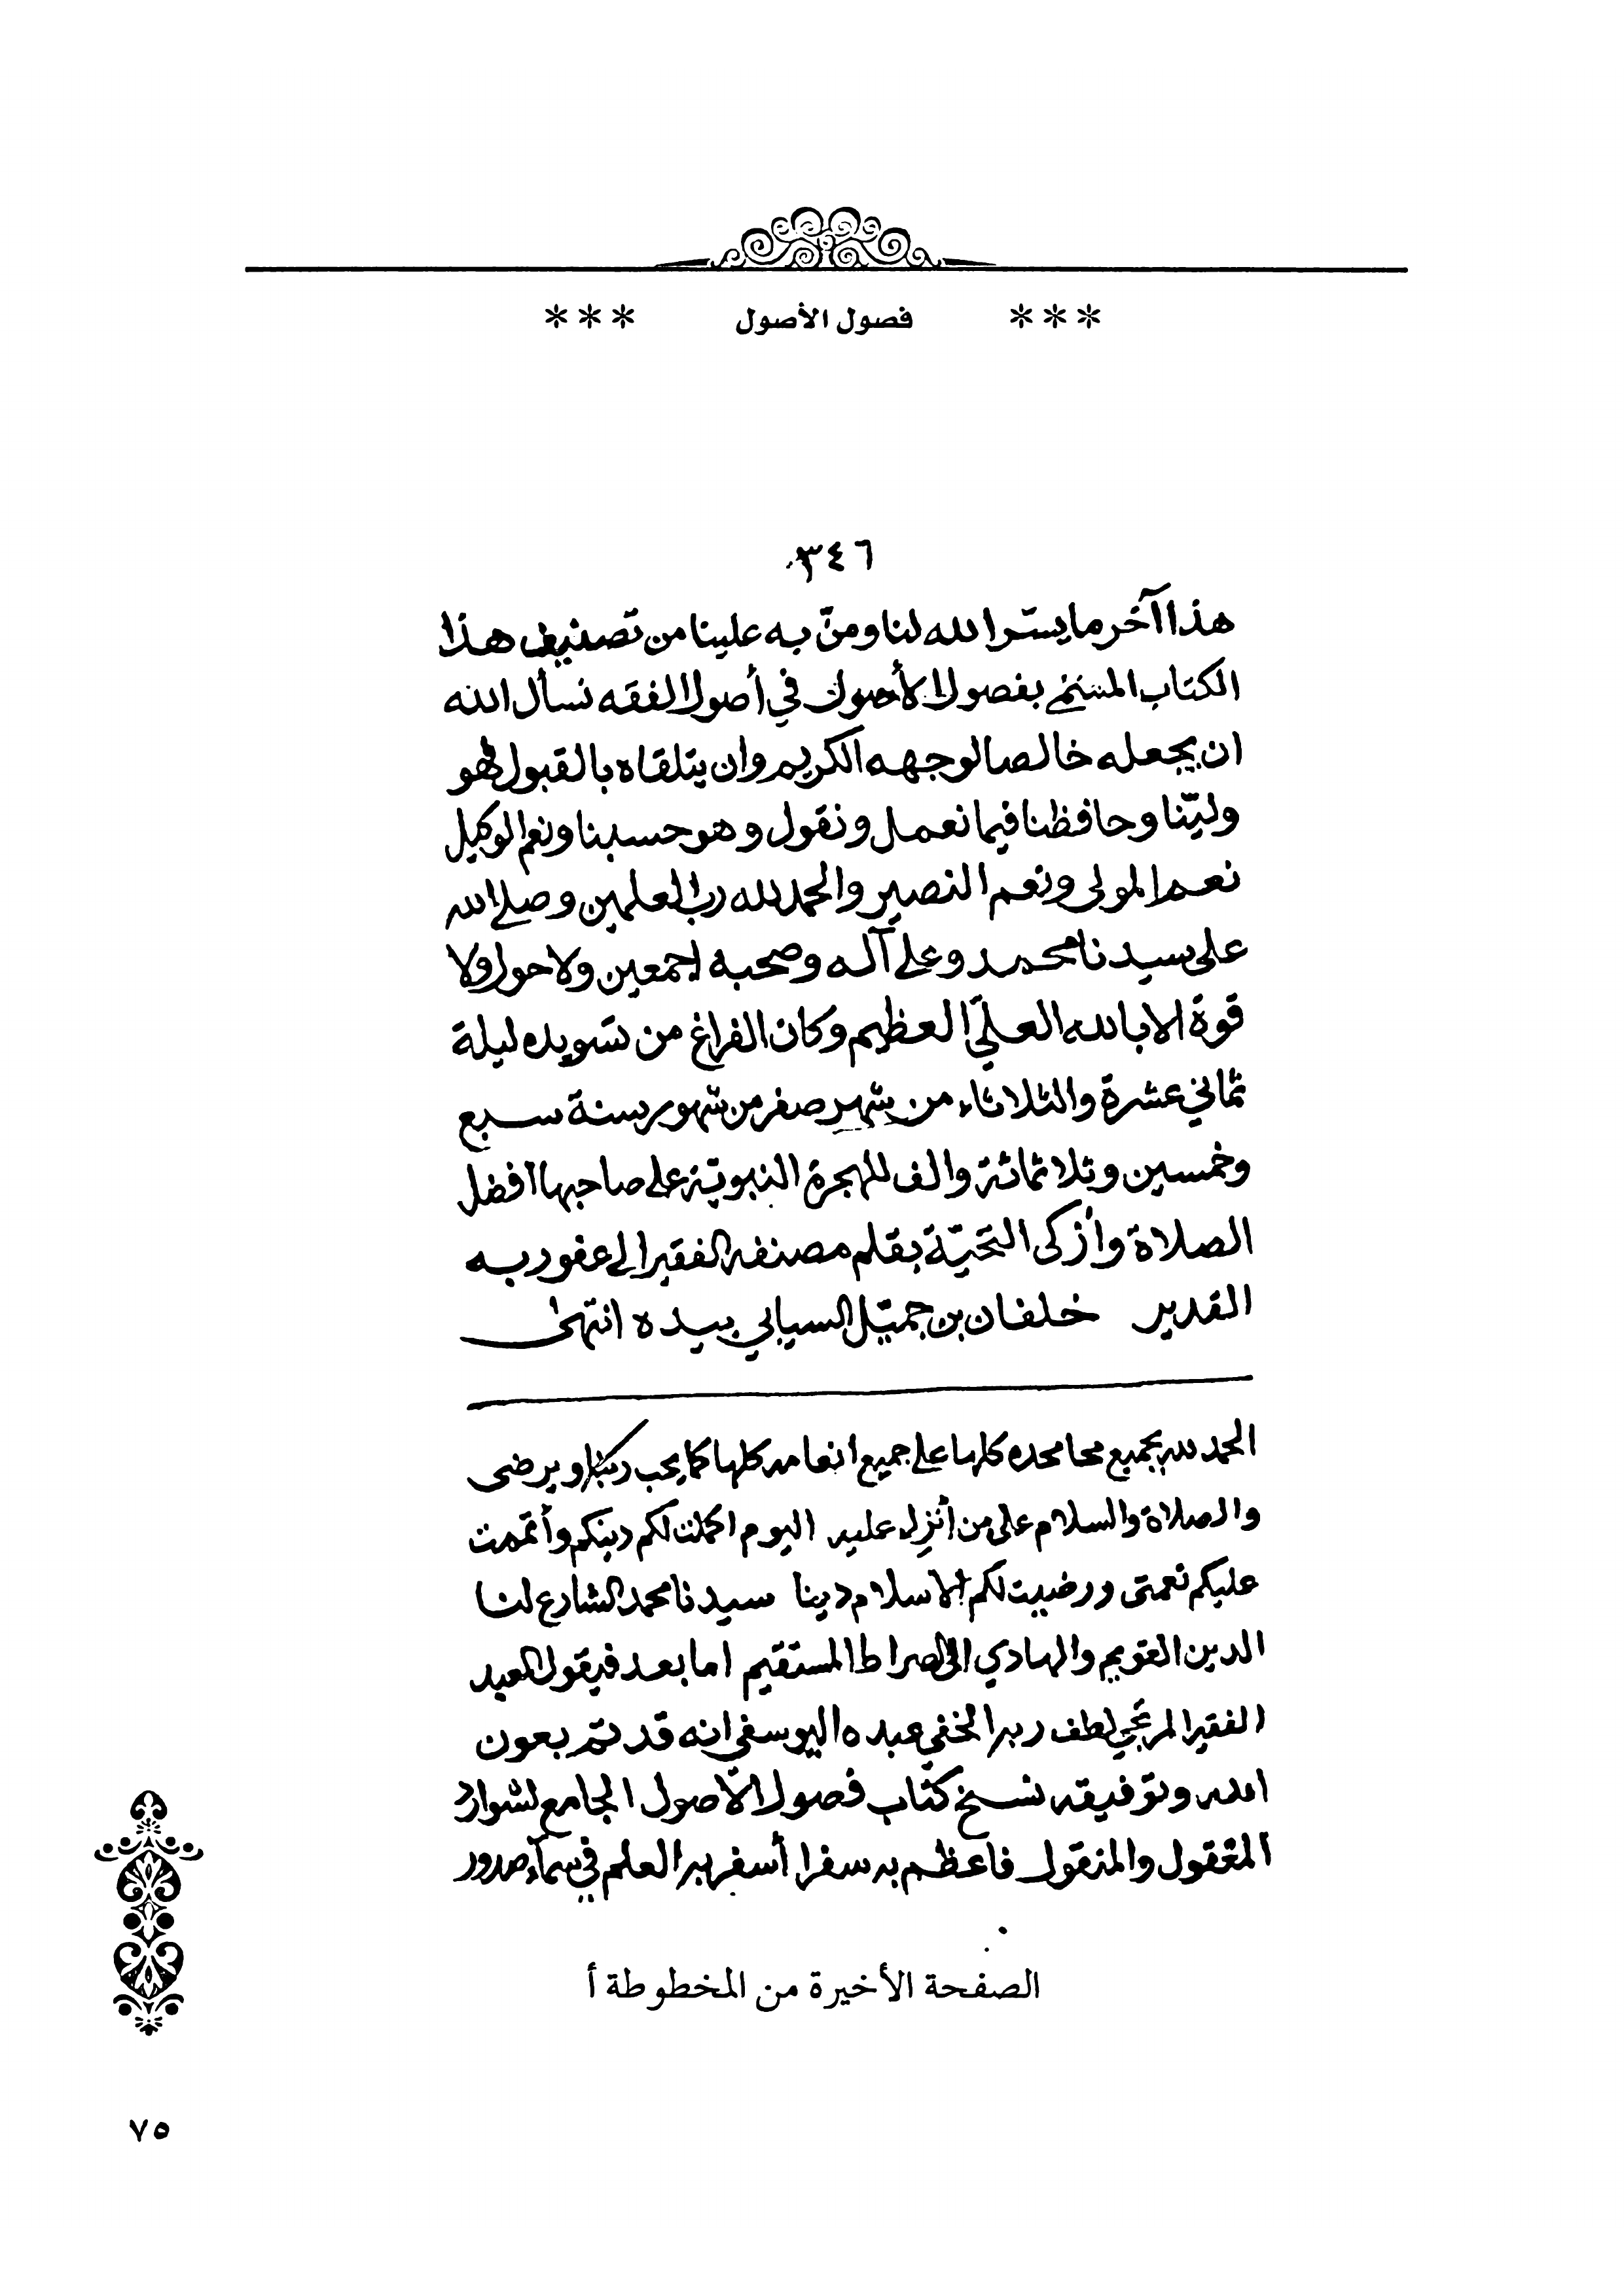 *** فصول الأصول ***
٣٤٦
هذا آخر ما يسّر الله لنا ومنّ به علينا من تصنيف هذا
الكتاب المسمى بفصول الأصول في أصول الفقه نسأل الله
ان يجعله خالصا لوجهه الكريم وان يتلقاه بالقبول فهو
وليّنا وحافظنا فيما نعمل ونقول وهو حسبنا ونعم الوكيل
نعم المولى ونعم النصير والحمد لله رب العلمين وصلى الله
على سيدنا محمد وعلى آله وصحبه اجمعين ولا حول ولا
قوة الا بالله العليّ العظيم وكان الفراغ من تسويده ليلة
ثماني عشرة والثلاثاء من شهر صفر من شهور سنة سبع
وخمسين وثلاثمائة والف للهجرة النبويّة على صاحبها افضل
الصلاة وأزكى التحيّة بقلم مصنفه الفقير الى عفو ربه
القدير خلفان بن جميّل السيابي بيده انتهى
الحمد لله بجميع محامحده كلها على جميع انعامه كلها كما يحب ربنا ويرضى
والصلاة والسلام على من أنزل عليه اليوم اكملت لكم دينكم وأتممت
عليكم نعمتى ورضيت لكم الاسلام دينا سيدنا محمد الشارع لنا
الدين القويم والهادي الى الصراط المستقيم اما بعد فيقول العبد
الفقير المرتجي لطف ربه الخفي عبده اليوسفي انه قد تمّ بعون
الله وتوفيقه نسخ كتاب فصول الأصول الجامع لشوارد
المعقول والمنقول فاعظم به سفرا أسفر به العلم في سمآء صدور
الصفحة الأخيرة من المخطوطة أ
٧٥